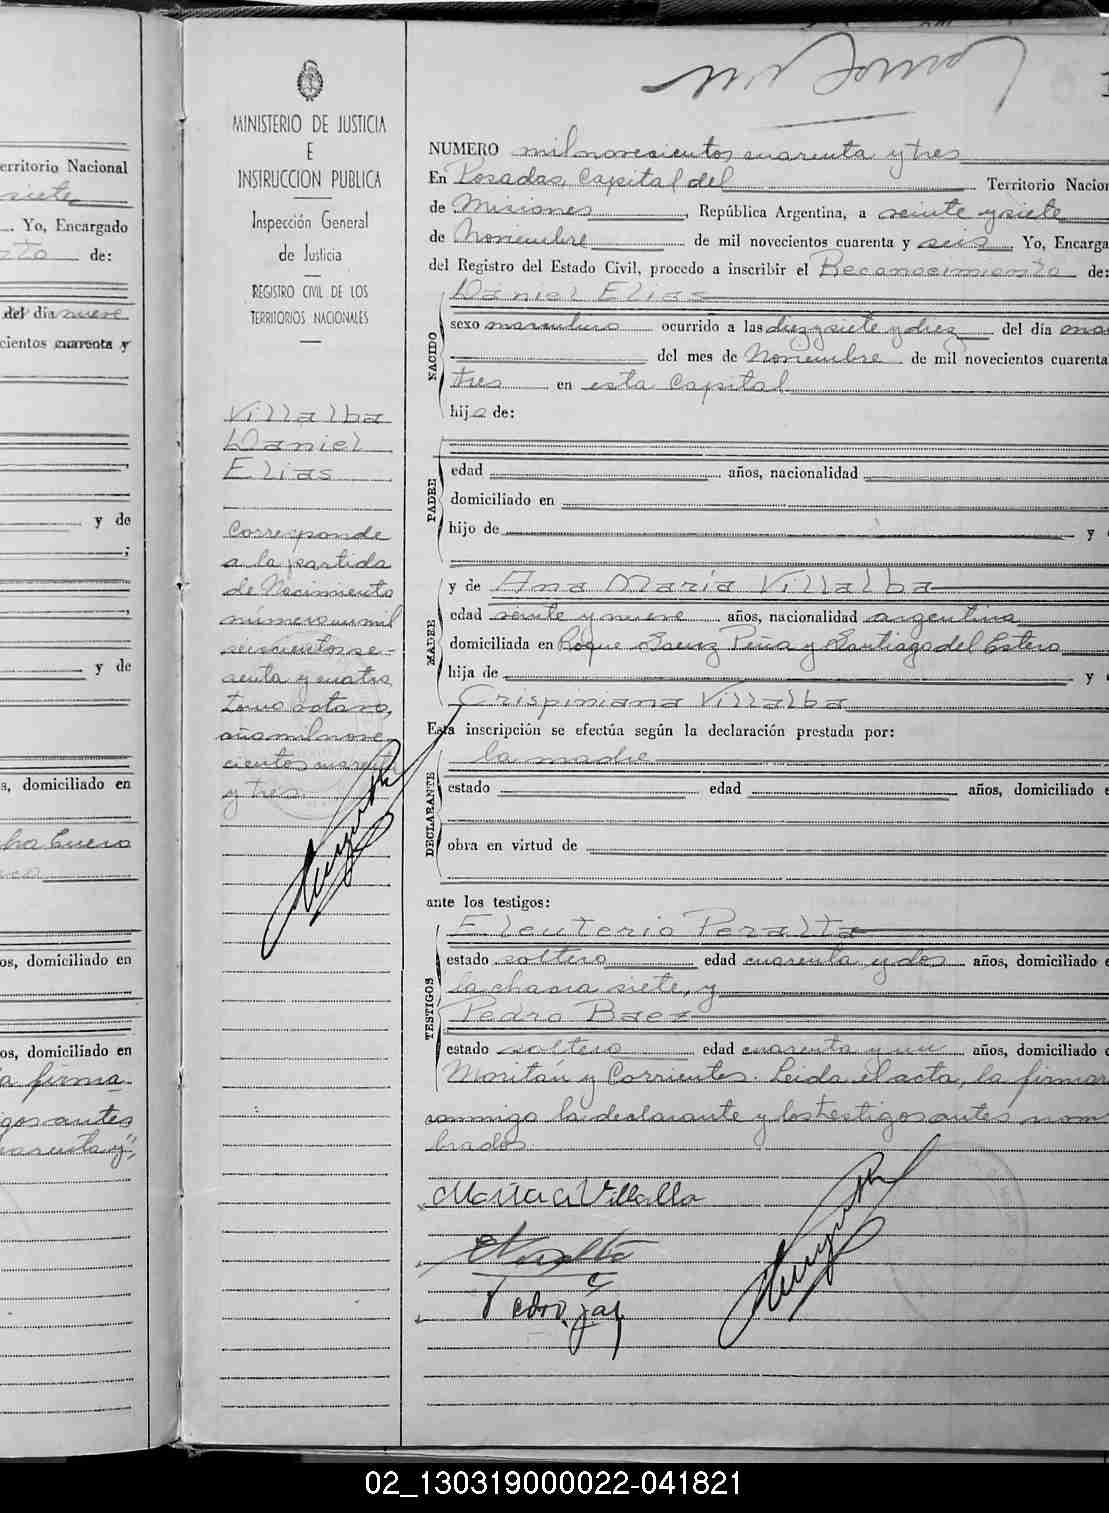 erritorio Nacional
siete
Yo, Encargado
de:
del día nueve
cientos cuarenta y
y de
y de
s, domiciliado en
os, domiciliado en
os, domiciliado en
a firma
gos antes
MINISTERIO DE JUSTICIA
E
INSTRUCCION PUBLICA
Inspección General
de Justicia
REGISTRO CIVIL DE LOS
TERRITORIOS NACIONALES
Villalba
Daniel
Elias
Corresponde
a la partida
de Nacimiento
número un mil
seiscientos se-
senta y cuatro
tomo octavo,
año mil nove
cientos cuarenta
y tres
NUMERO mil novecientos cuarenta y tres
En Posadas, Capital del Territorio Nacion
de Misiones, República Argentina, a veinte y siete
de Noviembre de mil novecientos cuarenta y seis Yo, Encarga
del Registro del Estado Civil, procedo a inscribir el Reconocimiento de:
Daniel Elias
NACIDO
sexo masculino ocurrido a las diez y siete y diez del día
del mes de Noviembre de mil novecientos cuarenta
tres en esta Capital
hijo de:
PADRE
edad años, nacionalidad
domiciliado en
hijo de y
MADRE
y de Ana María Villalba
edad veinte y nueve años, nacionalidad argentina
domiciliada en Roque Saenz Peña y Santiago del Estero
hija de y
Crispiniana Villalba
Esta inscripción se efectúa según la declaración prestada por:
DECLARANTE
la madre
estado edad años, domiciliado e
obra en virtud de
ante los testigos:
TESTIGOS
Eleuterio Peralta
estado soltero edad cuarenta y dos años, domiciliado e
la chacra siete, y
Pedro Baez
estado soltero edad cuarenta y un años, domiciliado e
y Corrientes. Leida el acta, la firmar
conmigo la declarante y los testigos antes nom
brados.
Maria A Villalba
Pedro
02_130319000022-041821